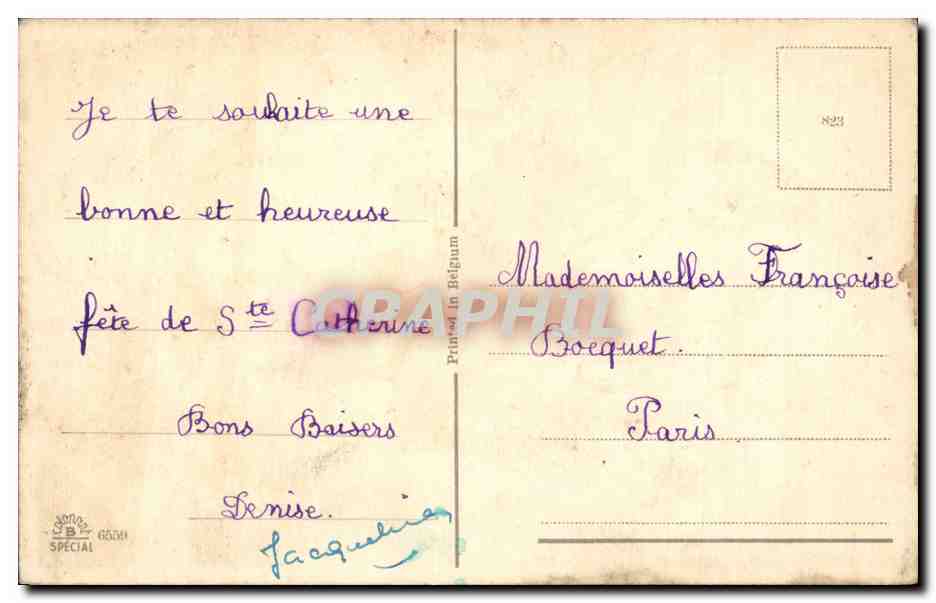 Je te souhaite une
bonne et heureuse
fête de Ste Catherine
Bons Baisers
Denise.
Jacqueline
Printed in Belgium
823
Mademoiselles Françoise
Bocquet.
Paris
Colorprint
B
SPECIAL
6559
CARAPHIL